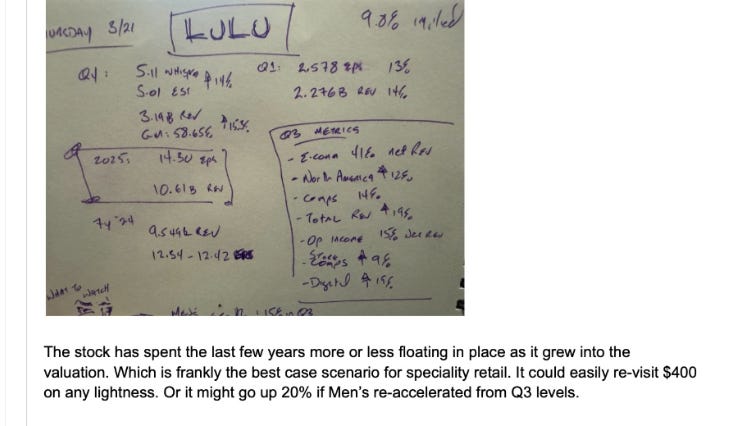 3/21
LULU
9.8% implied
Q4: 5.11 whisper ↑14%
5.01 EST
3.19B Rev ↑15%
GM: 58.65%
Q1: 2.578 EPS 13%
2.276B REV 14%
2025: 14.30 EPS
10.61B Rev
FY'24
REV
12.34 - 12.42
Q3 METRICS
- E-comm 41% net Rev
- North America ↑12%
- Comps 14%
- Total Rev ↑19%
- Op income 15%
Comps ↑9%
- Digital ↑19%
What to watch
The stock has spent the last few years more or less floating in place as it grew into the
valuation. Which is frankly the best case scenario for speciality retail. It could easily re-visit $400
on any lightness. Or it might go up 20% if Men's re-accelerated from Q3 levels.